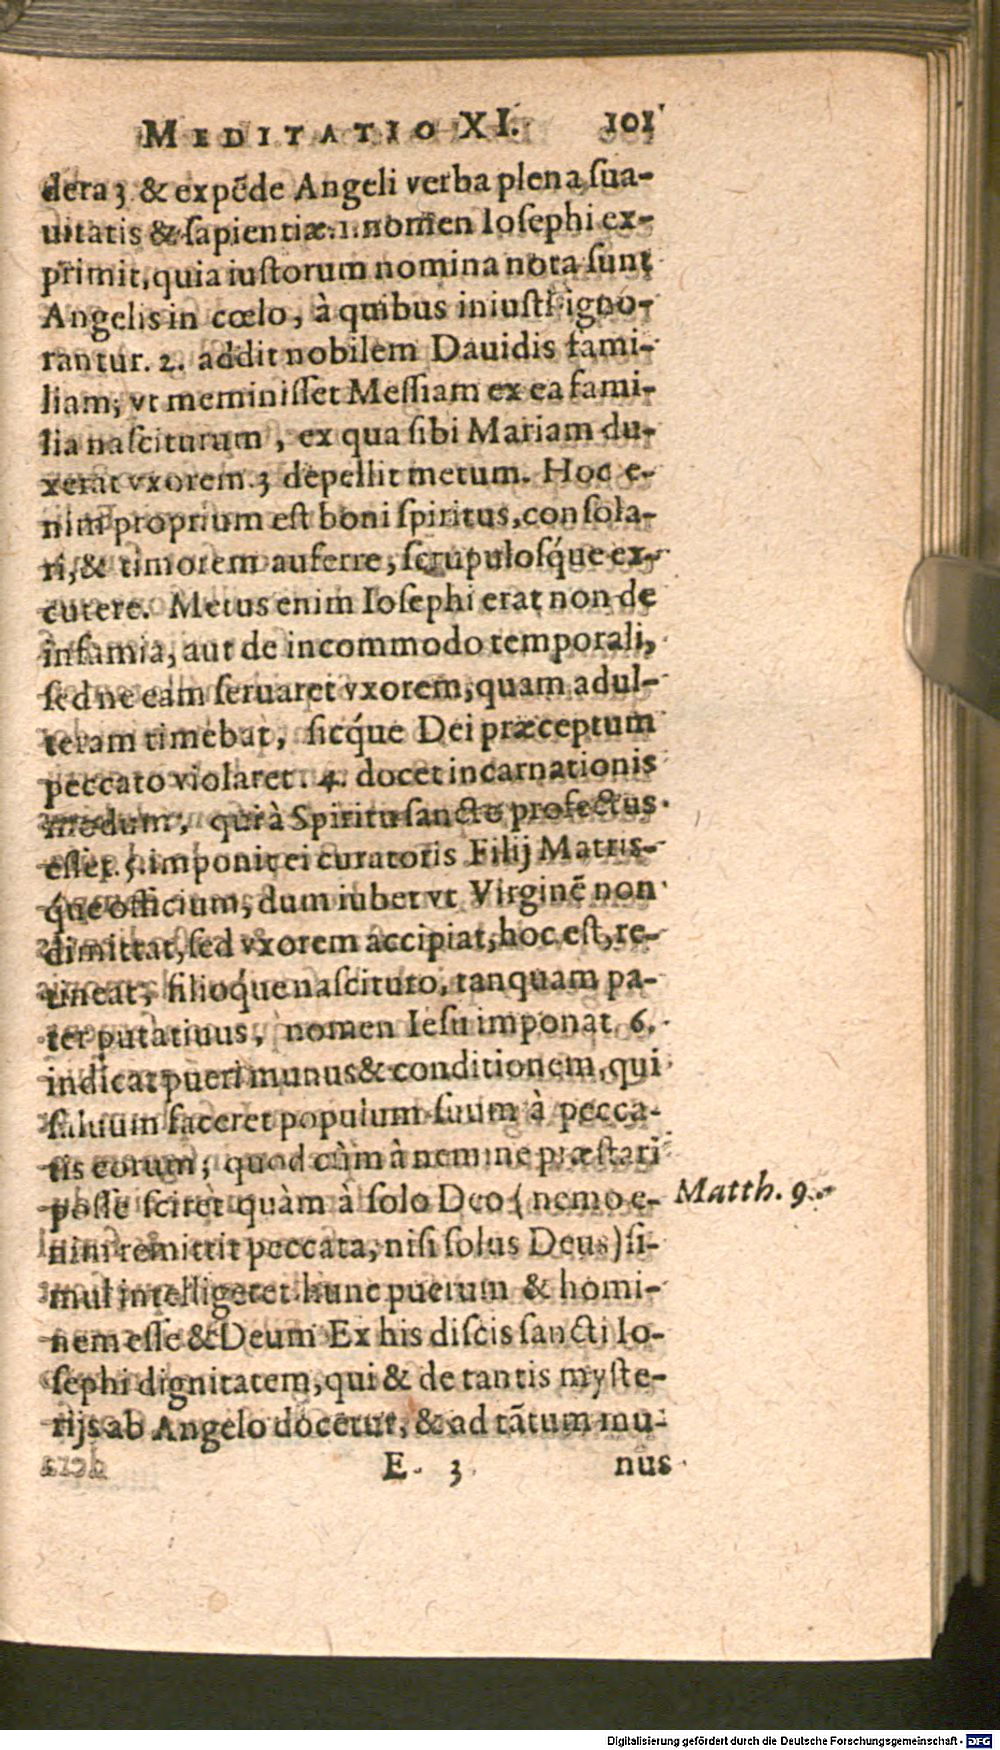 MEDITATIO XI. 101
dera; & expẽde Angeli verba plena sua-
uitatis & sapientiæ. 1. nomen Iosephi ex-
primit, quia iustorum nomina nota sunt
Angelis in cœlo, à quibus iniusti igno-
rantur. 2. addit nobilem Dauidis fami-
liam, vt meminisset Messiam ex ea fami-
lia nasciturum, ex qua sibi Mariam du-
xerat vxorem. 3 depellit metum. Hoc e-
nim proprium est boni spiritus, consola-
ri, & timorem auferre, scrupulosq́ue ex-
cutere. Metus enim Iosephi erat non de
infamia, aut de incommodo temporali,
sed ne eam seruaret vxorem, quam adul-
teram timebat, sicq́ue Dei præceptum
peccato violaret. 4. docet incarnationis
modum, qui à Spiritu sancto profectus
esset. 5. imponit ei curatoris Filij Matris-
q́ue officium, dum iubet vt Virginẽ non
dimittat, sed vxorem accipiat, hoc est, re-
tineat, filioq́ue nascituro, tanquam pa-
ter putatiuus, nomen Iesu imponat. 6.
indicat pueri munus & conditionem, qui
saluum faceret populum suum à pecca-
tis eorum; quod cùm à nemine præstari
posse sciret quàm à solo Deo (nemo e-
nim remittit peccata, nisi solus Deus) si-
mul intelligeret hunc puerum & homi-
nem esse & Deum Ex his discis sancti Io-
sephi dignitatem, qui & de tantis myste-
rijs ab Angelo docetur, & ad tãtum mu-
E 3 nus
Matth. 9.
Digitalisierung gefördert durch die Deutsche Forschungsgemeinschaft - DFG